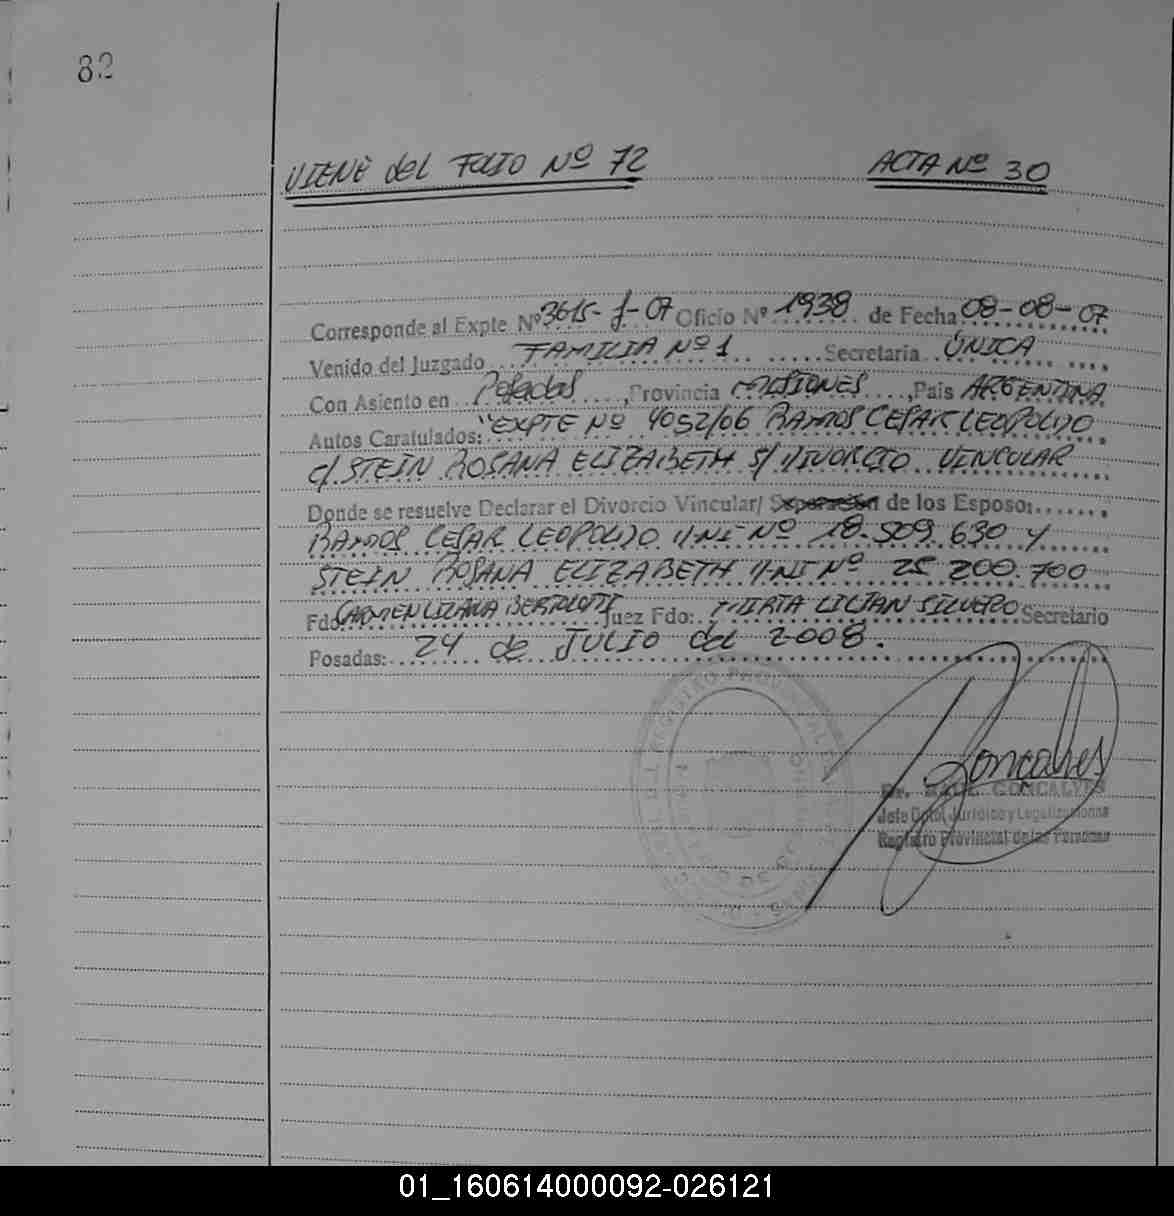 82
VIENE del FOLIO Nº 72
ACTA Nº 30
Corresponde al Expte Nº 3615-J-07 Oficio Nº 1938 de Fecha 08-08-07
Venido del Juzgado FAMILIA Nº 1 Secretaria ÚNICA
Con Asiento en Posadas, Provincia MISIONES, Pais ARGENTINA
Autos Caratulados: "EXPTE Nº 4052/06 RAMOS CESAR LEOPOLDO
c/ STEIN ROSANA ELIZABETH S/ DIVORCIO VINCULAR
Donde se resuelve Declarar el Divorcio Vincular/ Separación de los Esposo:
RAMOS CESAR LEOPOLDO DNI Nº 18.509.630 Y
STEIN ROSANA ELIZABETH DNI Nº 25.200.700
Fdo CARMEN LILIANA BERTOLOTTI Juez Fdo: MIRTA LILIAN SILVERO Secretario
Posadas: 24 de JULIO del 2008.
Gonçalves
Dr. RAUL GONCALVES
Jefe Dptol Jurídico y Legalizaciones
Registro Provincial de las Personas
01_160614000092-026121